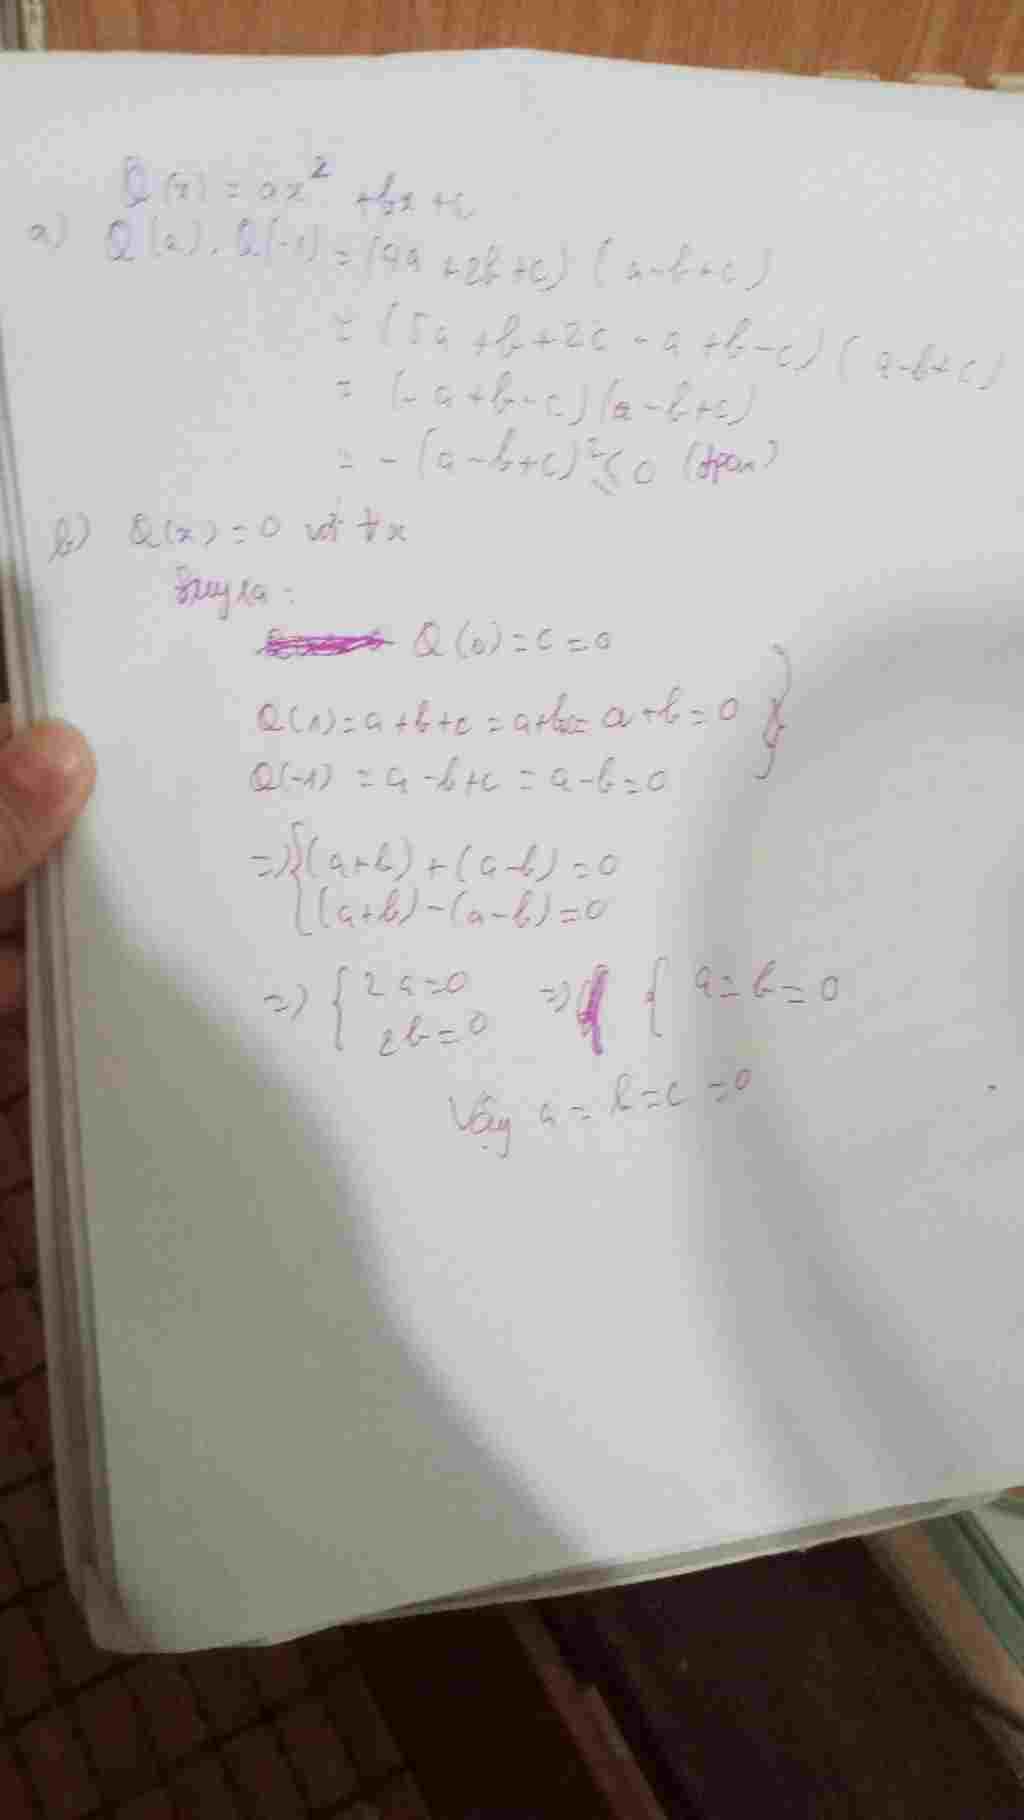 Q(x) = ax² + bx + c
a) Q(2). Q(-1) = (4a + 2b + c) (a - b + c)
= (5a + b + 2c - a + b - c) (a - b + c)
= (- a + b - c) (a - b + c)
= - (a - b + c)² ≤ 0 (đpcm)
b) Q(x) = 0 với ∀x
Suy ra :
Q(0) = c = 0
Q(1) = a + b + c = a + b = 0 }
Q(-1) = a - b + c = a - b = 0
=> { (a + b) + (a - b) = 0
(a + b) - (a - b) = 0
=> { 2a = 0 => { a = b = 0
2b = 0
Vậy a = b = c = 0